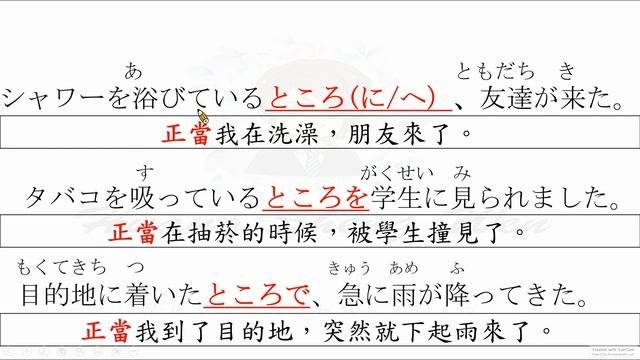 あ ともだち き
シャワーを浴びているところ(に/へ)、友達が来た。
正當我在洗澡，朋友來了。
す がくせい み
タバコを吸っているところを学生に見られました。
正當在抽菸的時候，被學生撞見了。
もくてきち つ きゅう あめ ふ
目的地に着いたところで、急に雨が降ってきた。
正當我到了目的地，突然就下起雨來了。